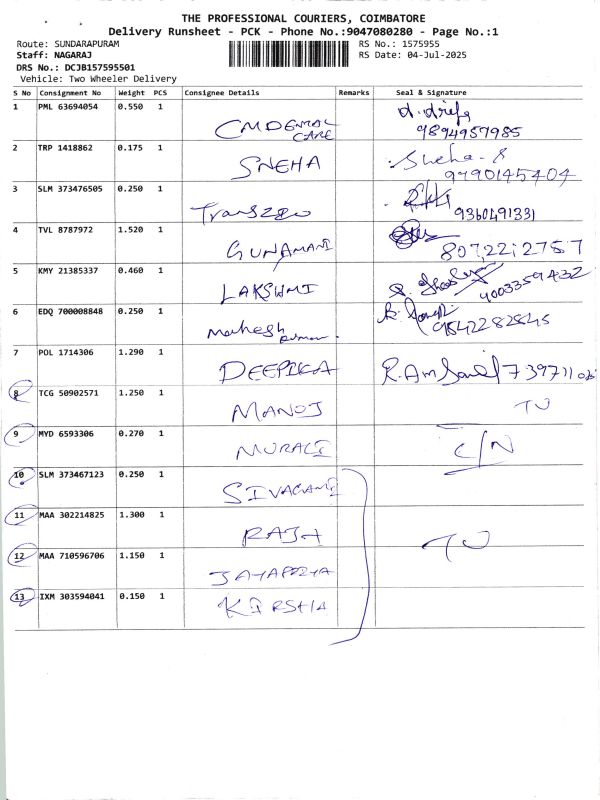 THE PROFESSIONAL COURIERS, COIMBATORE
Delivery Runsheet - PCK - Phone No.:9047080280 - Page No.:1
Route: SUNDARAPURAM RS No.: 1575955
Staff: NAGARAJ RS Date: 04-Jul-2025
DRS No.: DCJB157595501
Vehicle: Two Wheeler Delivery
S No Consignment No Weight PCS Consignee Details Remarks Seal & Signature
1 PML 63694054 0.550 1 CMDENTAL CARE 9894957985
2 TRP 1418862 0.175 1 SNEHA Sneha
3 SLM 373476505 0.250 1 9360491331
4 TVL 8787972 1.520 1 GUNAMANI 8072212757
5 KMY 21385337 0.460 1 LAKSHMI 9003359432
6 EDQ 700008848 0.250 1 Mahesh
7 POL 1714306 1.290 1 DEEPIKA
8 TCG 50902571 1.250 1 MANOJ
9 MYD 6593306 0.270 1 MURALI C/N
10 SLM 373467123 0.250 1 SIVAGAMI
11 MAA 302214825 1.300 1 RAJA
12 MAA 710596706 1.150 1 JAYAPRIYA
13 IXM 303594041 0.150 1